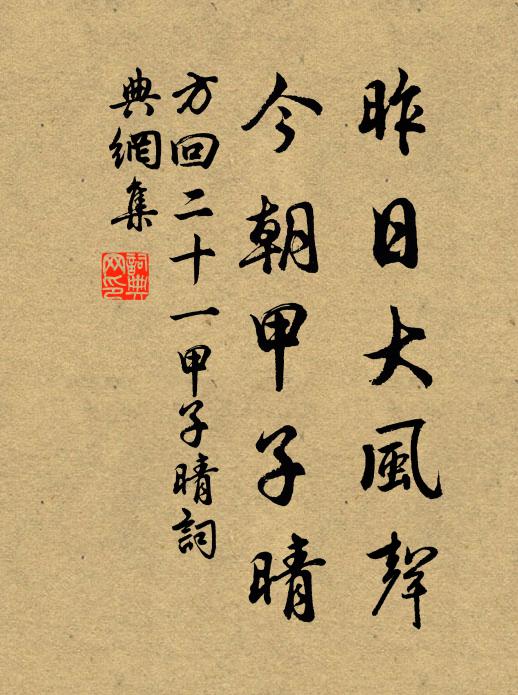 昨日大風聲
今朝甲子晴
方回二十一甲子晴詞
典網集
詞典網印